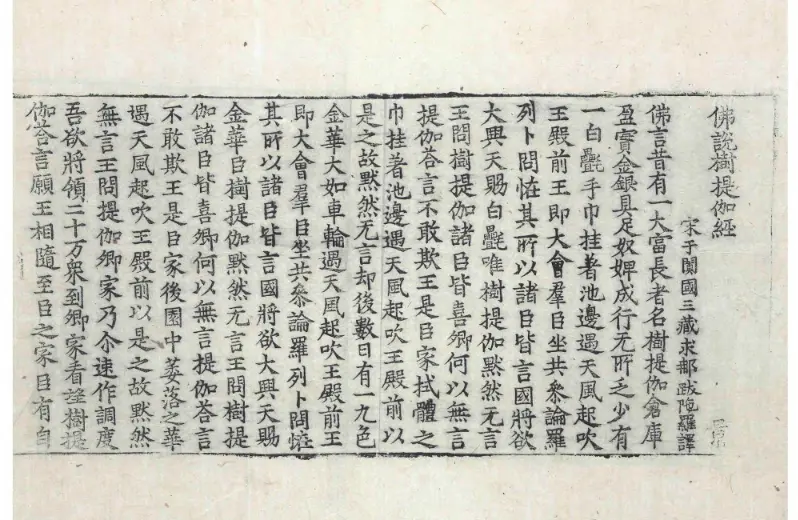 佛說樹提伽經
宋于闐國三藏求那跋陀羅譯
佛言昔有一大富長者名樹提伽倉庫
盈實金銀具足奴婢成行无所乏少有
一白氎手巾挂著池邊遇天風起吹
王殿前王即大會羣臣坐共叅論羅
列卜問恠其所以諸臣皆言國將欲
大興天賜白氎唯樹提伽默然无言
王問樹提伽諸臣皆喜卿何以無言
提伽荅言不敢欺王是臣家拭體之
巾挂著池邊遇天風起吹王殿前以
是之故默然无言却後數日有一九色
金華大如車輪遇天風起吹王殿前王
即大會羣臣坐共叅論羅列卜問恠
其所以諸臣皆言國將欲大興天賜
金華臣樹提伽默然无言王問樹提
伽諸臣皆喜卿何以無言提伽荅言
不敢欺王是臣家後園中萎落之華
遇天風起吹王殿前以是之故默然
無言王問提伽卿家乃尒速作調度
吾欲將領二十万衆到卿家看樹提
伽荅言願王相隨至臣之家臣有自